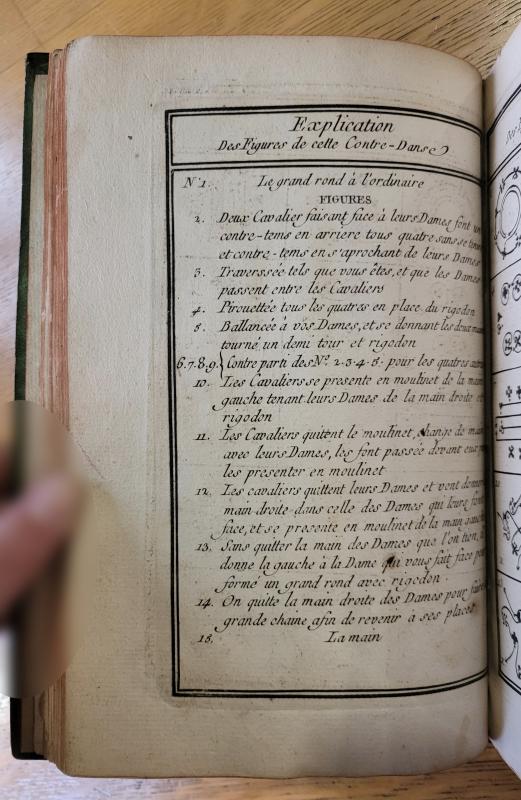 Explication
Des Figures de cette Contre-Danse
N.º 1. Le grand rond à l'ordinaire
FIGURES
2. Deux Cavalier faisant face à leurs Dames font un
contre-tems en arriere tous quatre sans se
et contre-tems en s'aprochant de leurs Dames
3. Traversée tels que vous êtes, et que les Dames
passent entre les Cavaliers
4. Pirouettée tous les quatres en place du rigodon
5. Ballancée à vos Dames, et se donnant les deux
tourné un demi tour et rigodon
6.7.8.9. Contre parti des Nº. 2.3.4.5. pour les quatres
10. Les Cavaliers se presente en moulinet de la
gauche tenant leurs Dames de la main droite et
rigodon
11. Les Cavaliers quitent le moulinet, change de
avec leurs Dames, les font passée devant eux
les presenter en moulinet
12. Les cavaliers quittent leurs Dames et vont
main droite dans celle des Dames qui leure font
face, et se presente en moulinet de la main
13. Sans quitter la main des Dames que l'on tien,
donne la gauche à la Dame qui vous fait face
formé un grand rond avec rigodon
14. On quitte la main droite des Dames pour
grande chaine afin de revenir à ses places
15. La main